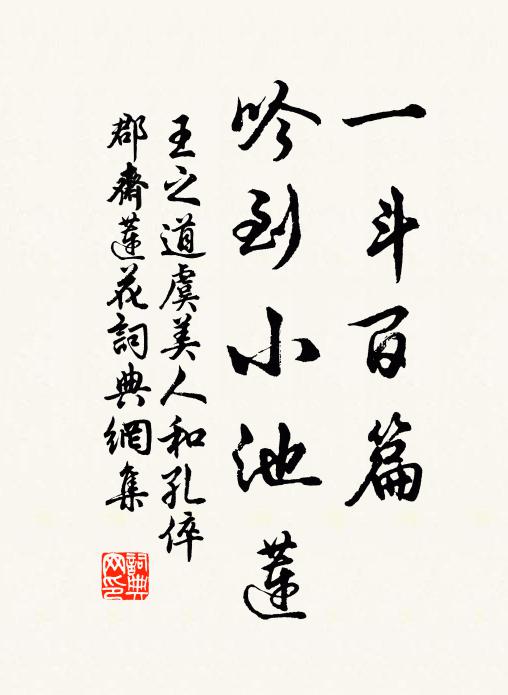 一斗百篇
吟到小池蓮
王之道虞美人和孔倅
郡齋蓮花詞典網集
詞典
网印